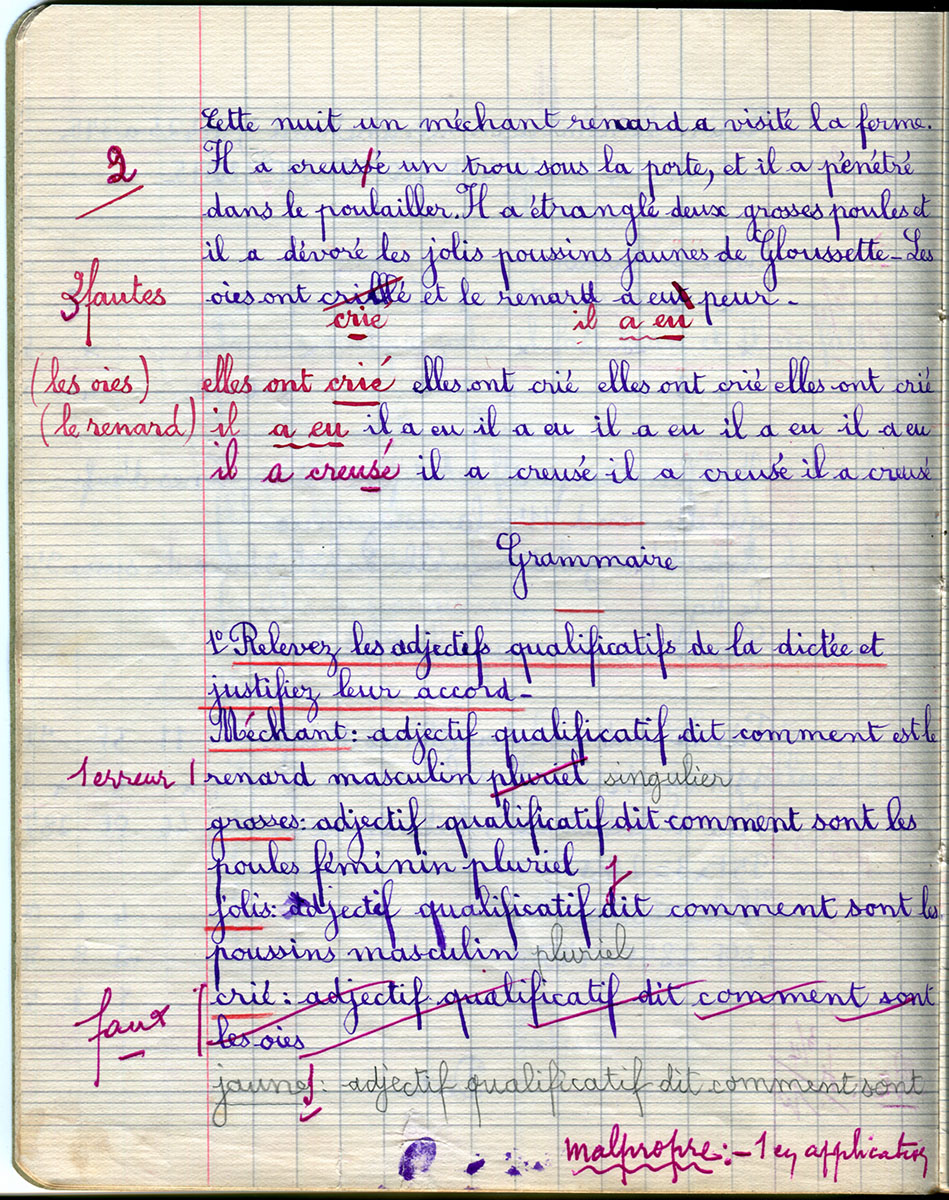 Cette nuit un méchant renard a visité la ferme.
2 Il a creusé un trou sous la porte, et il a pénétré
dans le poulailler. Il a étranglé deux grosses poules et
il a dévoré les jolis poussins jaunes de Gloussette - Les
3 fautes oies ont et le renard a eut peur -
crié il a eu
(les oies) elles ont crié elles ont crié elles ont crié elles ont crié
(le renard) il a eu il a eu il a eu il a eu il a eu il a eu
il a creusé il a creusé il a creusé il a creusé
Grammaire
1° Relevez les adjectifs qualificatifs de la dictée et
justifiez leur accord -
Méchant : adjectif qualificatif dit comment est le
1 erreur renard masculin pluriel singulier
grosses : adjectif qualificatif dit comment sont les
poules féminin pluriel
jolis : adjectif qualificatif dit comment sont les
poussins masculin pluriel
crié : adjectif qualificatif dit comment sont
faux les oies
jaunes : adjectif qualificatif dit comment sont
malpropre : - 1 en application